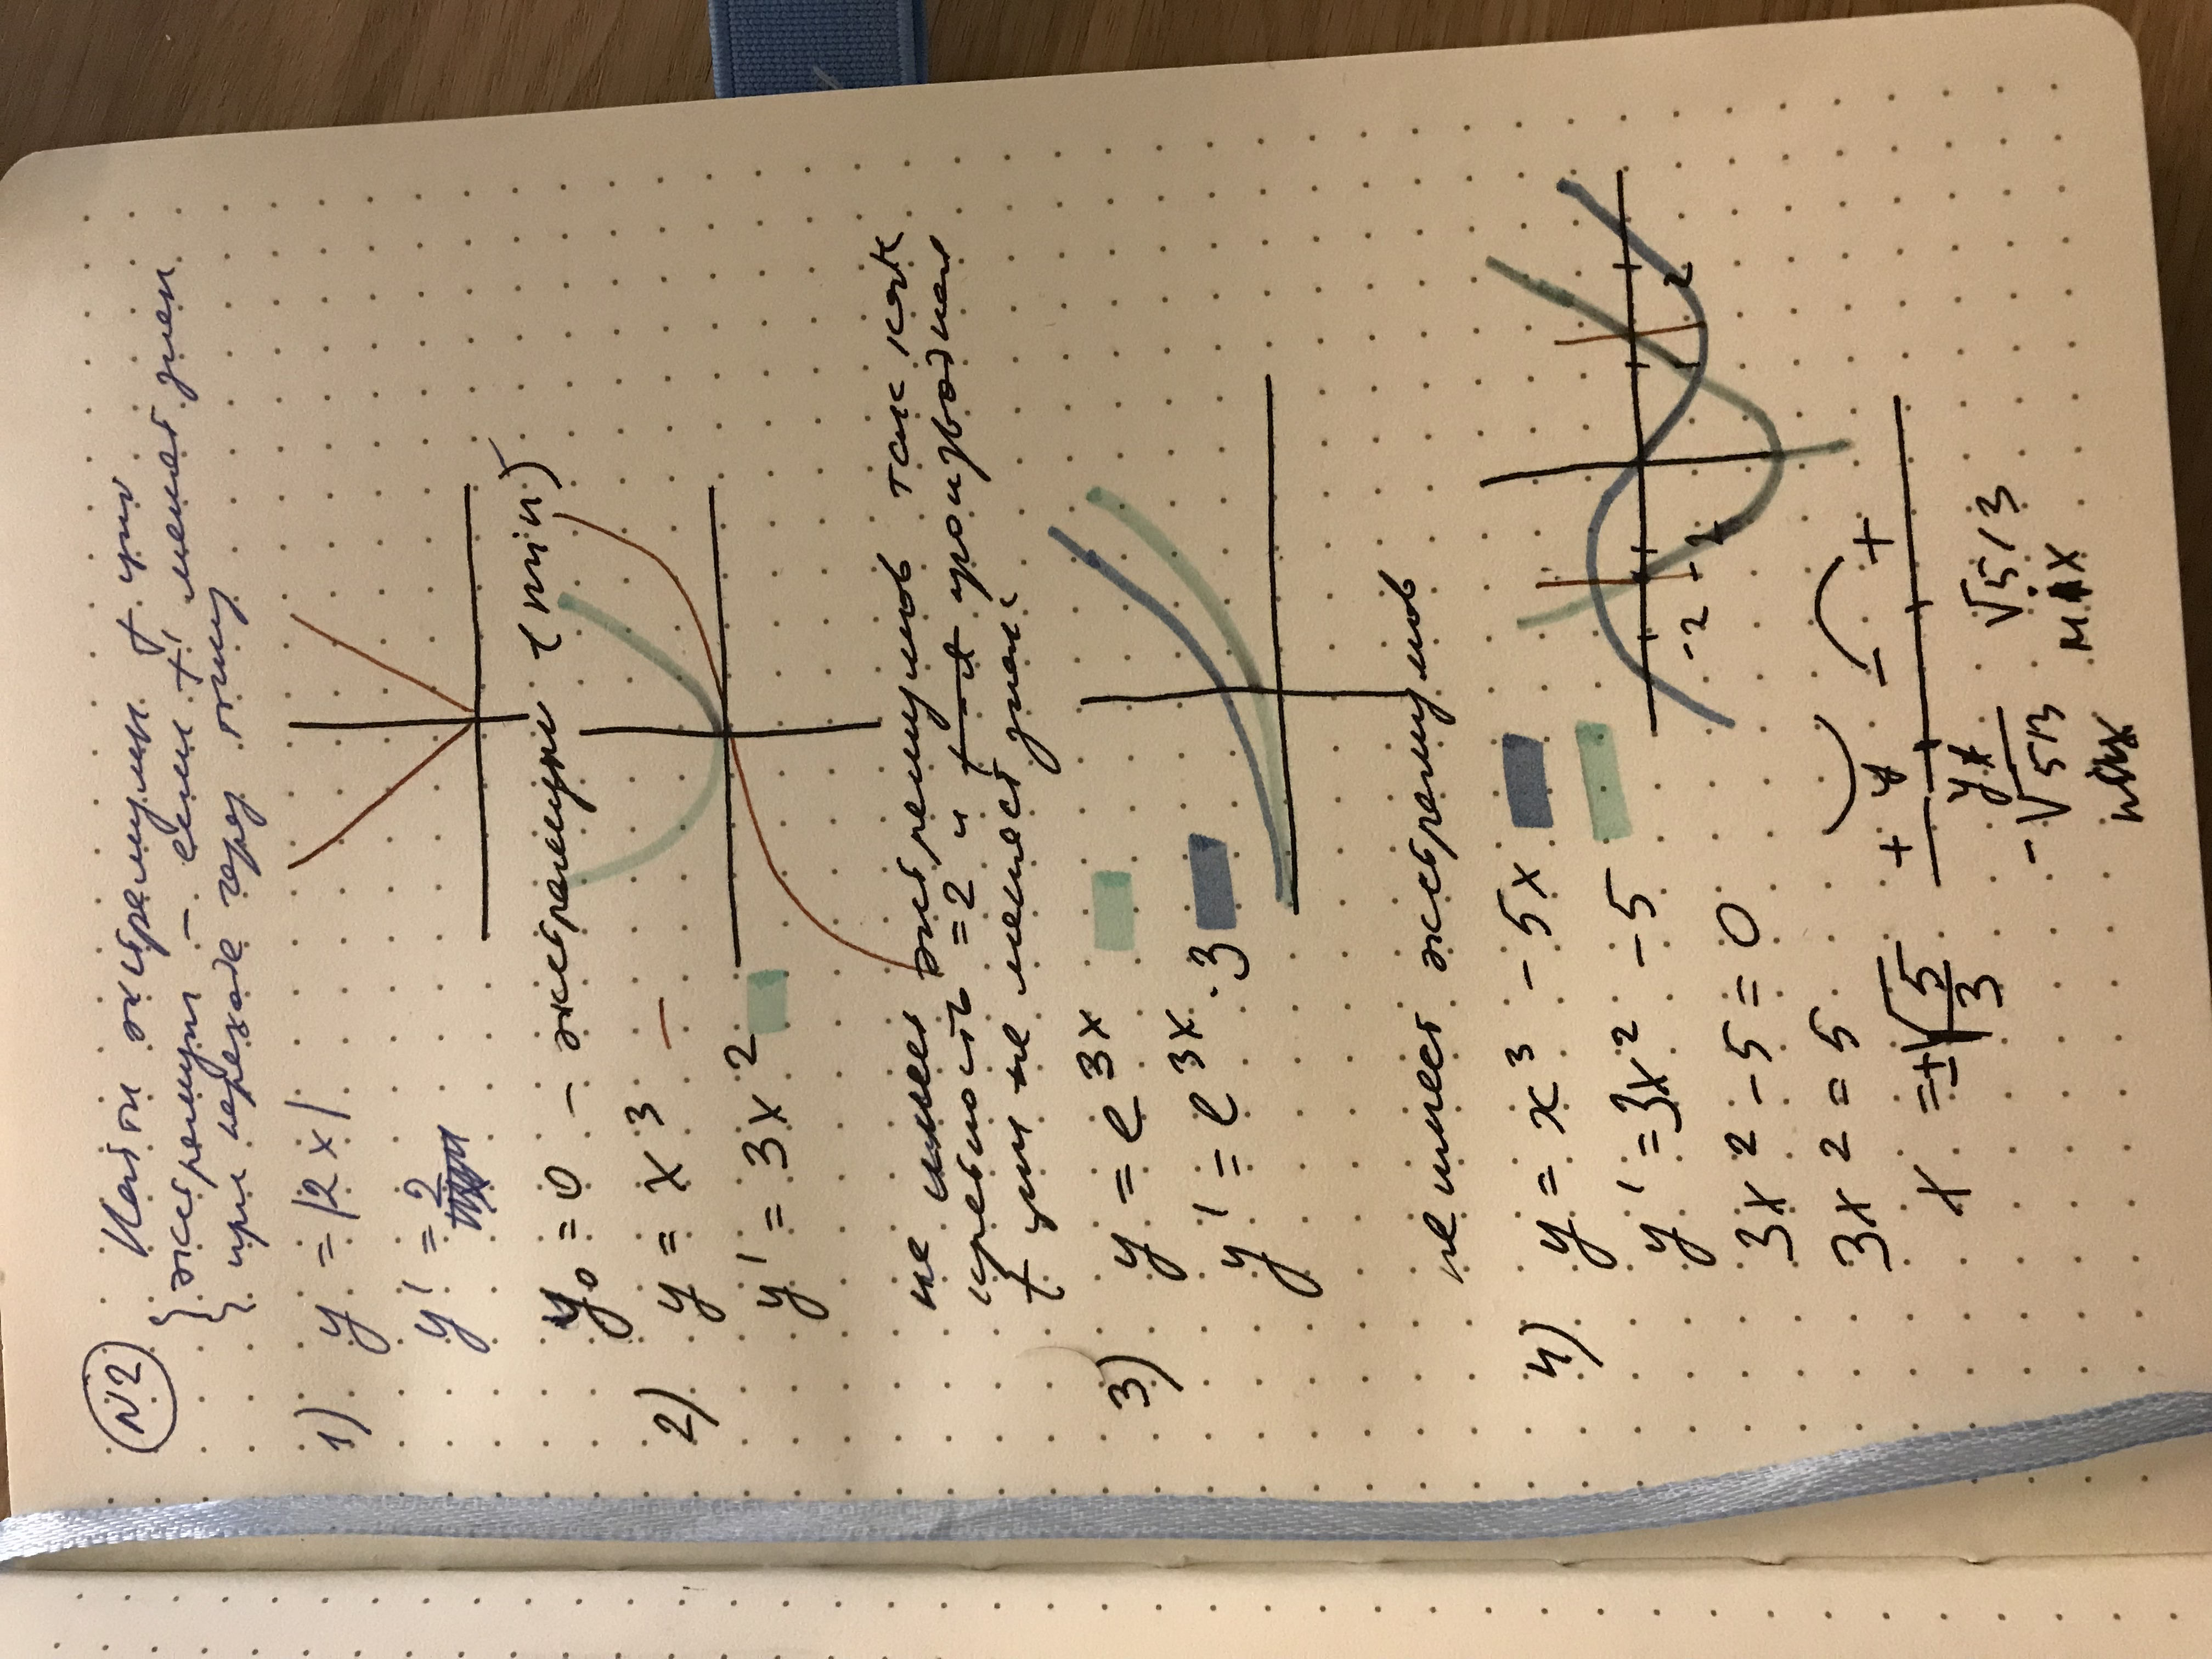 N2 Найти экстремумы ф ции
экстремум – если f' меняет знак
при переходе через точку
1) y = |2x|
y' = 2
y₀ = 0 – экстремум (min)
2) y = x³ –
y' = 3x²
не имеет экстремумов так как
кратность = 2 и производная
ф ции не меняет знак
3) y = e³ˣ
y' = e³ˣ · 3
не имеет экстремумов
4) y = x³ – 5x
y' = 3x² – 5
-2 -1 1 2
3x² – 5 = 0
3x² = 5
+ – +
x = ±√5/3
-√5/3 √5/3